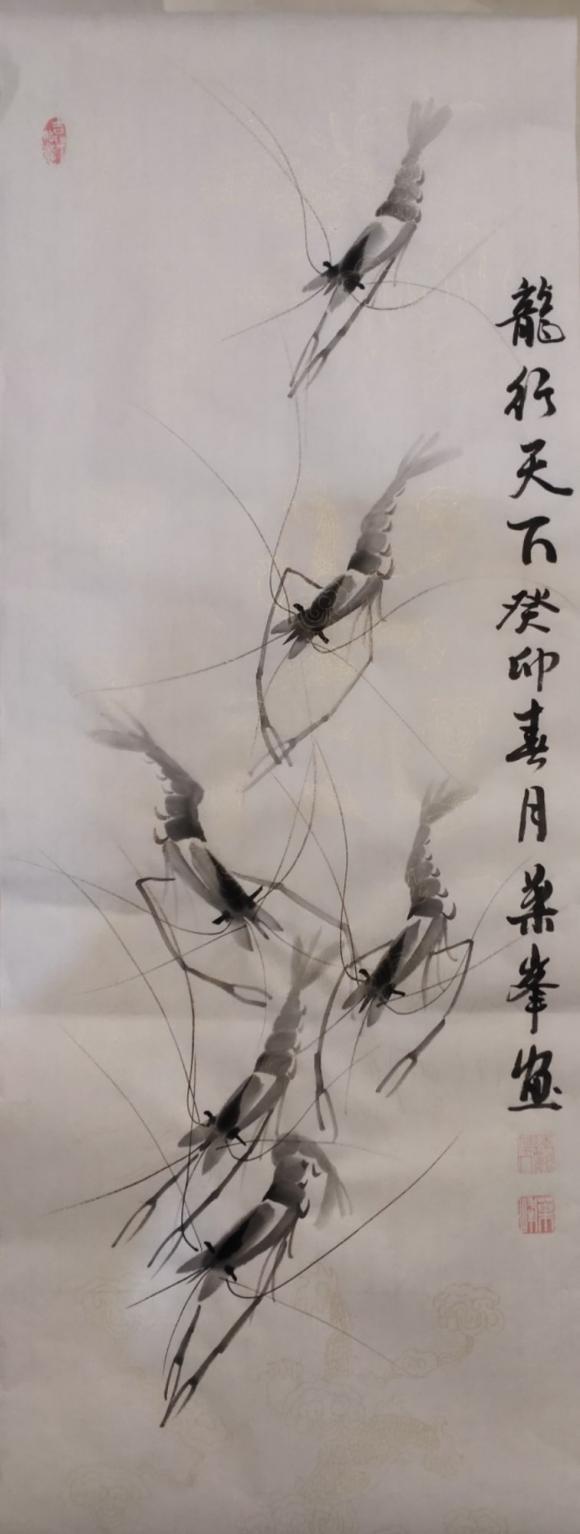 龍行天下癸卯春月葉峯画